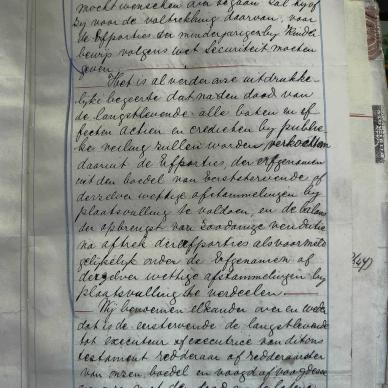 mocht wenschen aan te gaan zal hij of
zij voor de voltrekking daarvan, voor
de Efporties der minderjarigen bij Kinder
bewijs volgens wet Securiteit moeten
geven.
Het is al verder onse uitdrukke-
lijke begeerte dat na den dood van
de langstlevende alle baten en ef
fecten actien en credieten by publie-
ke veiling zullen worden verkocht om
daaruit de Efporties, der erfgenamen
uit den boedel van Eerststervende of
derzelver wettige afstammelingen by
plaatsvulling te voldoen, en de balans
der opbrengst van zoodanige venditie
na aftrek der efporties als voormeld
gelijkelijk onder de Erfgenamen of
derzelver wettige afstammelingen by
plaatsvulling te verdeelen.
Wij benoemen elkander over en weder
dat is de eerststervende de langstlevende
tot executeur of executrice van dit ons
testament redderaar of redderaarster
van onzen boedel en voogd of voogdesse